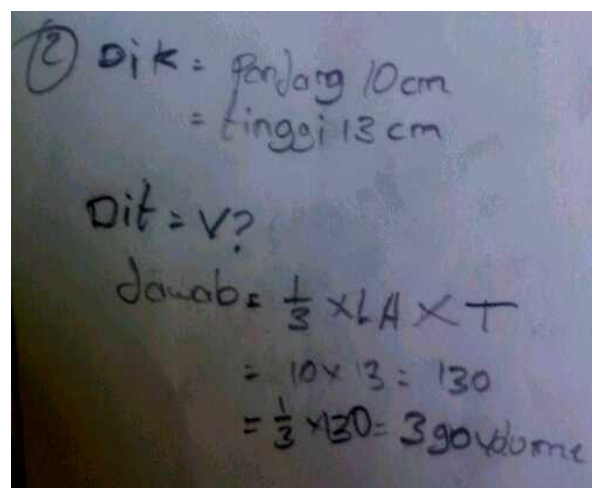 2 Dik = panjang 10 cm
= tinggi 13 cm
Dit = V?
Jawab = 1/3 x LA x T
= 10 x 13 = 130
= 1/3 x 130 = 390 volume